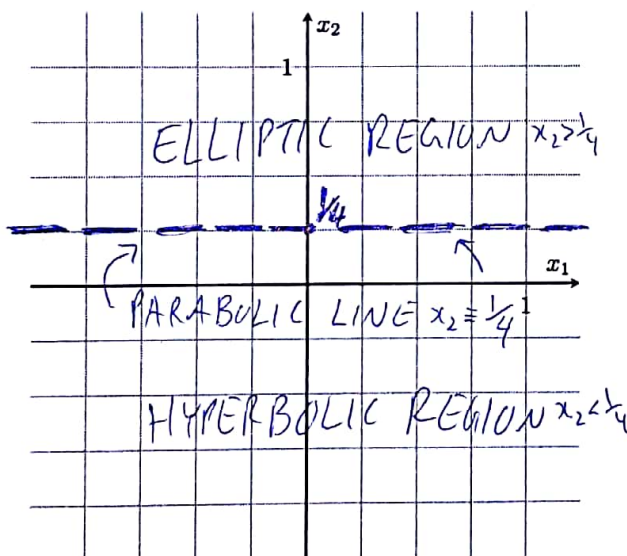 x₂
1
ELLIPTIC REGION x₂>1/4
1/4
x₁
PARABOLIC LINE x₂≡1/4
1
HYPERBOLIC REGION x₂<1/4